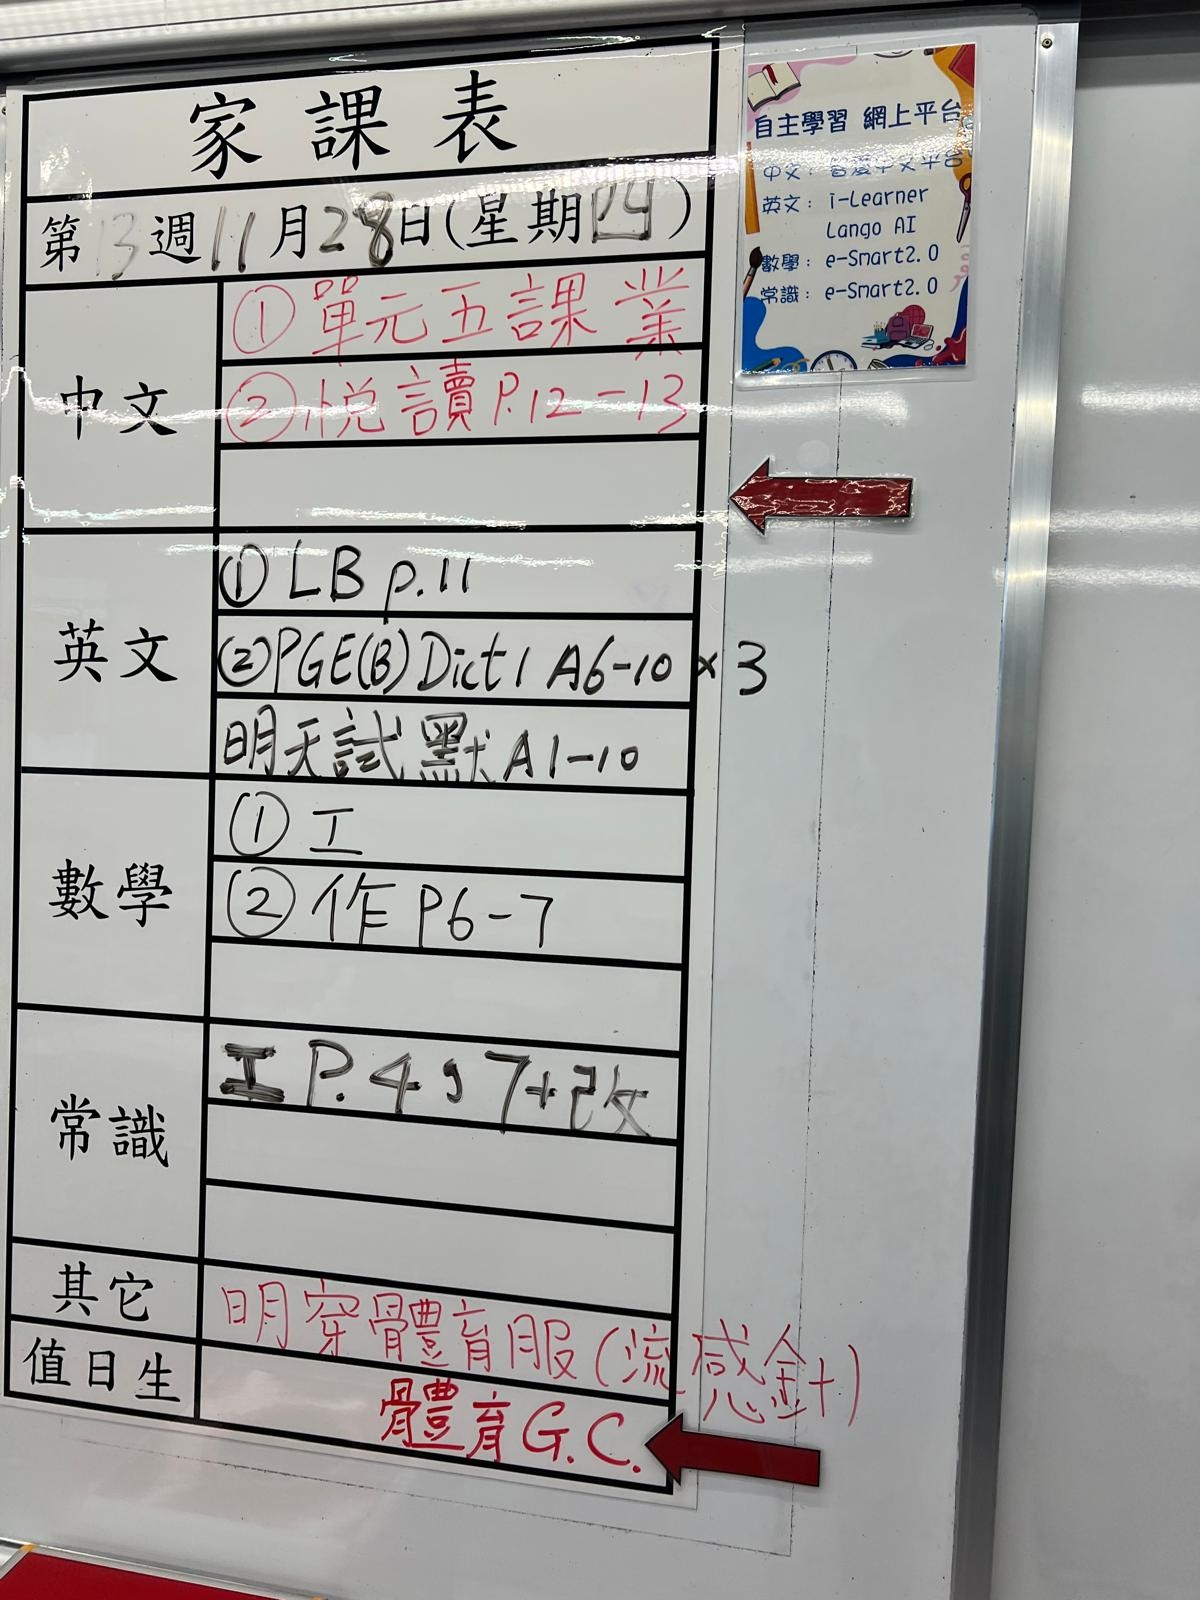 家課表
第13週11月28日(星期四)
中文
①單元五課業
②悅讀P.12-13
英文
①LB p.11
②PGE(B)Dict1 A6-10 × 3
明天試默A1-10
數學
①工
②作P6-7
常識
工P.4、7+改
其它
明穿體育服(流感針)
值日生
體育G.C.
自主學習 網上平台
中文: 中文平台
英文: i-Learner
Lango AI
數學: e-Smart2.0
常識: e-Smart2.0